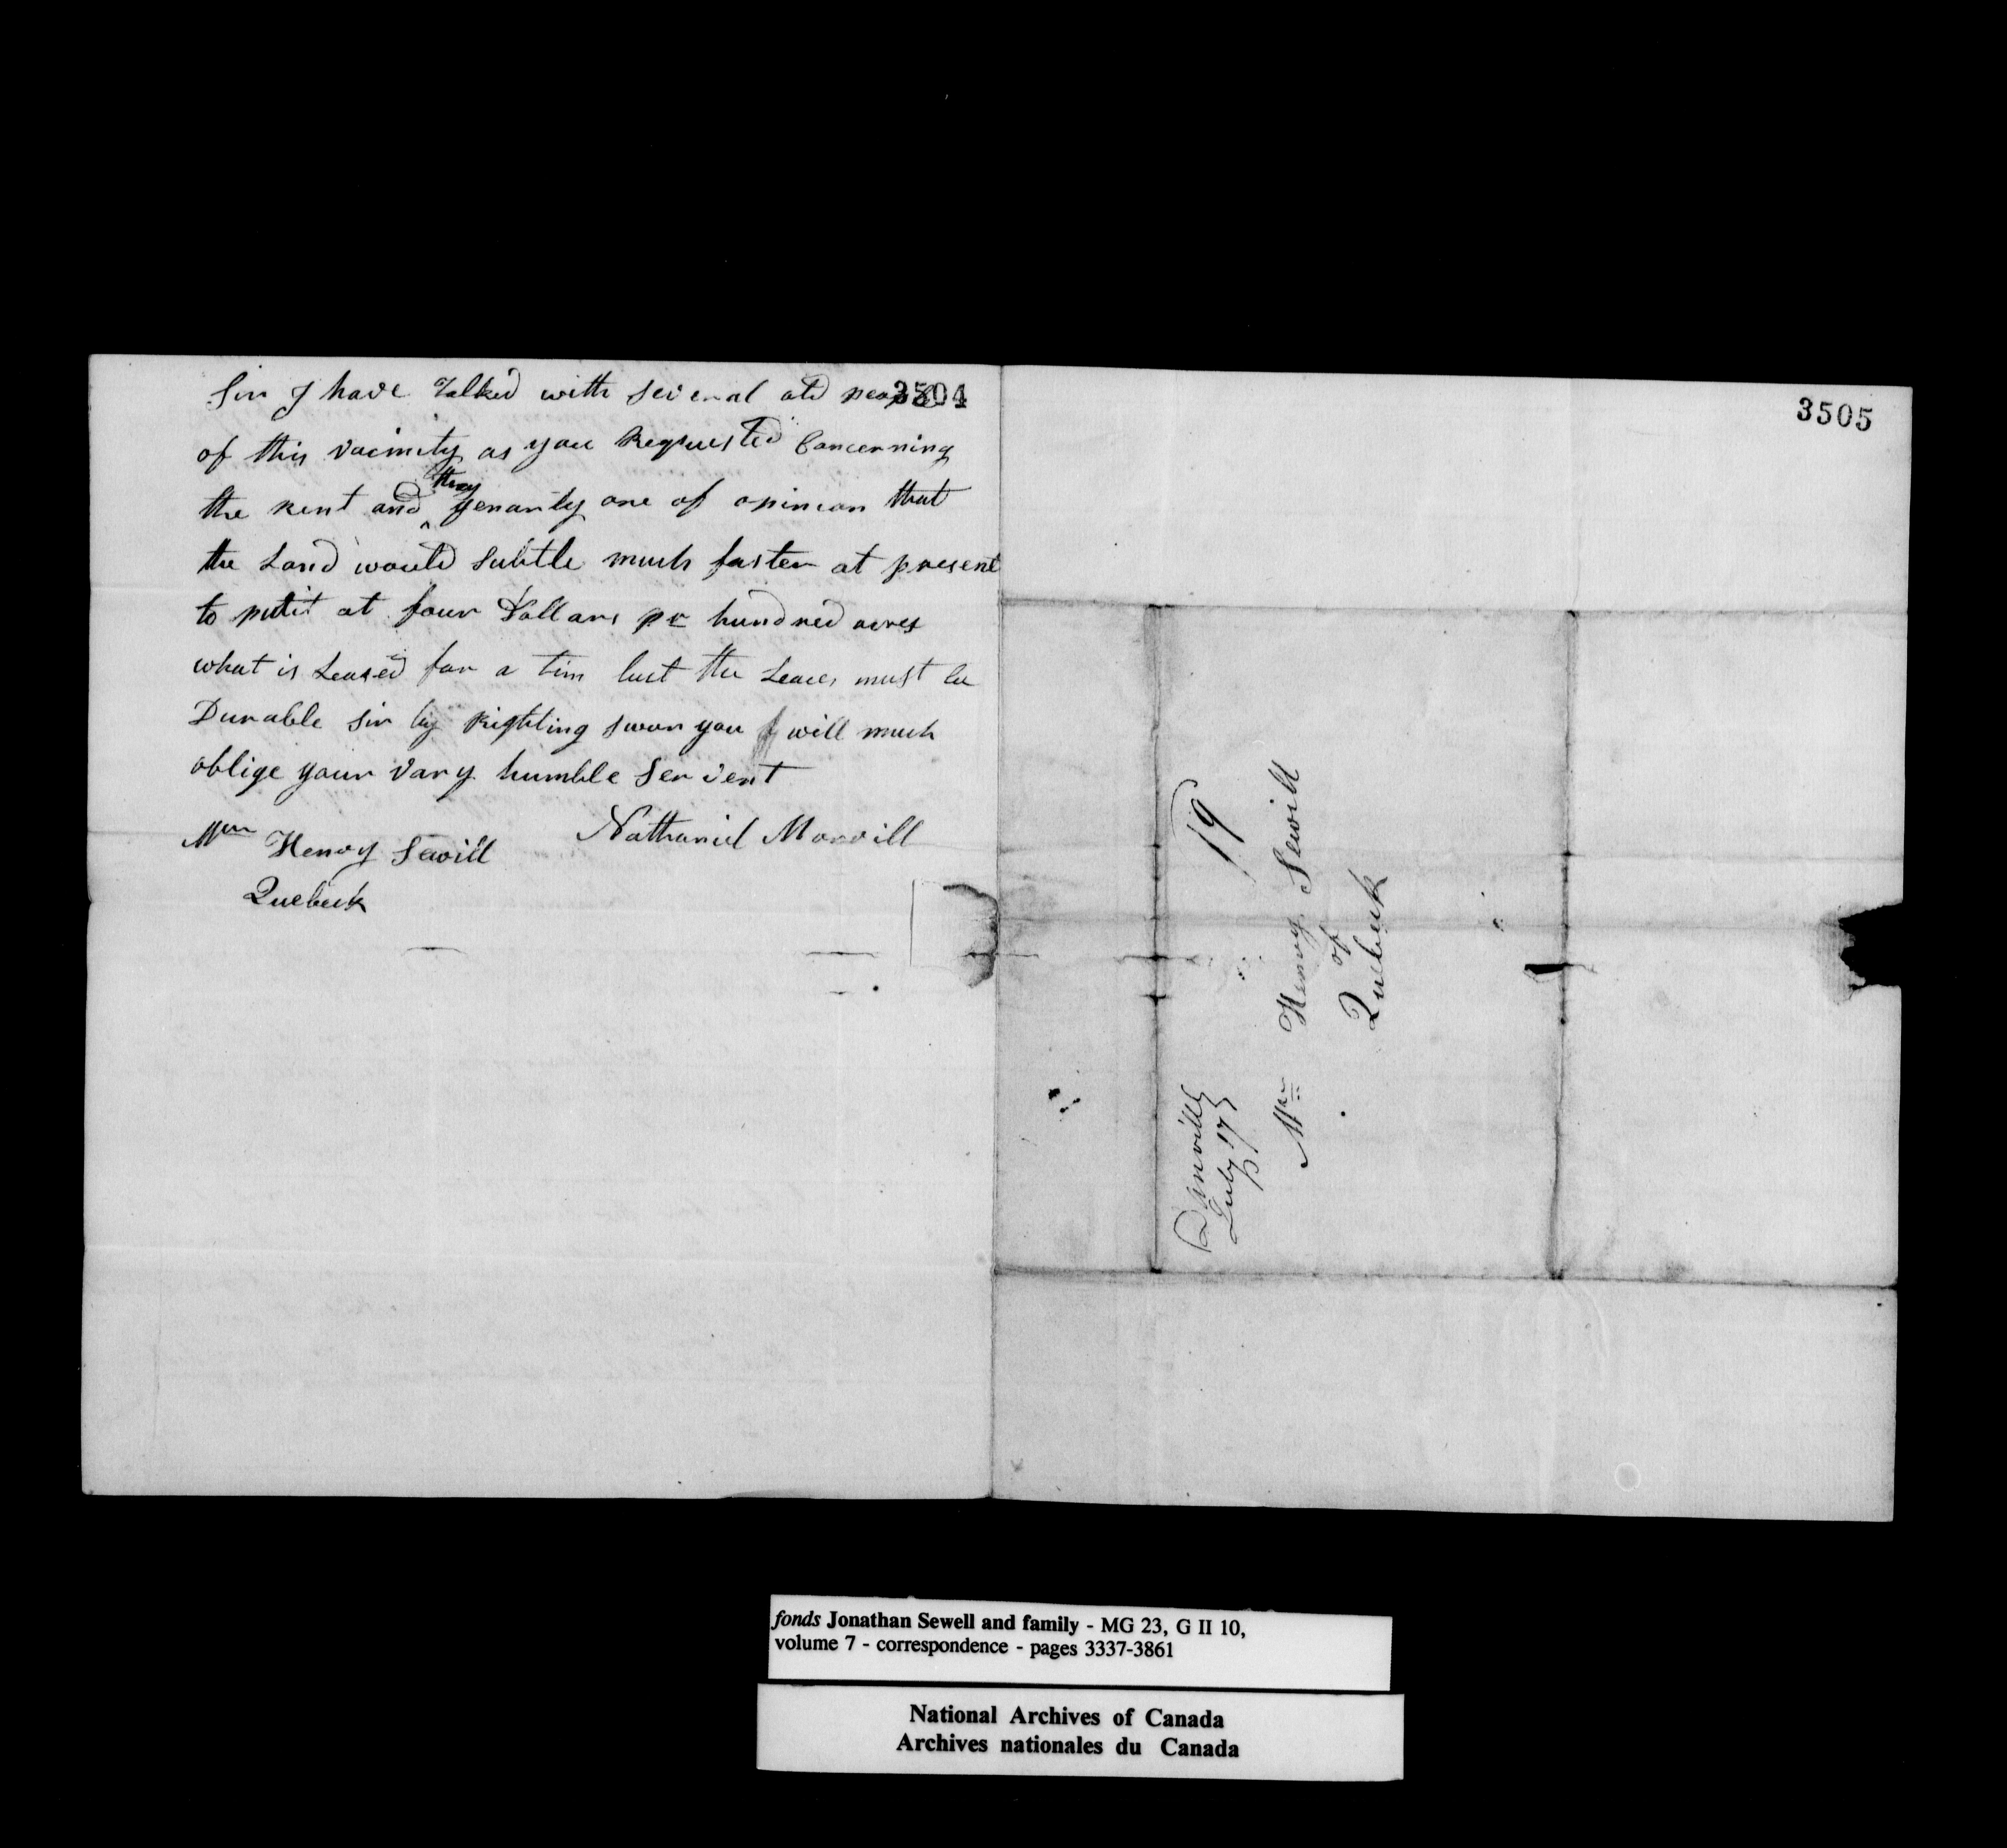 3504
Sir I have Talked with several old people
of this vacinity as you Requested Concerning
the Rent and they genarily are of opinion that
the Land would subtle much faster at present
to putit at four Dollars pr hundred acres
what is Leased for a tim but the Leaces must be
Durable sir by Righting soon you will much
oblige your vary humble Servent
Nathaniel Morrill
Mr Henry Sewill
Quebeck
3505
Danville
July 17
19
Mr Henry Sewill
of
Quebeck
fonds Jonathan Sewell and family - MG 23, G II 10,
volume 7 - correspondence - pages 3337-3861
National Archives of Canada
Archives nationales du Canada